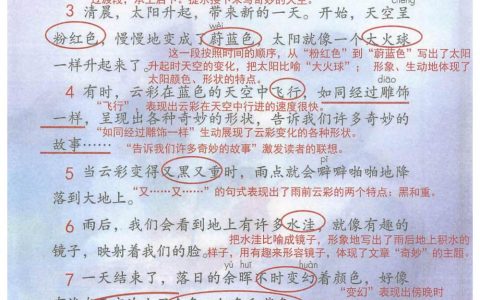 chéng
3 清晨，太阳升起，带来新的一天。开始，天空呈
wèi
粉红色，慢慢地变成了蔚蓝色，太阳就像一个大火球
这一段按照时间的顺序，从“粉红色”到“蔚蓝色”写出了太阳
一样升起来了。升起时天空的变化，把太阳比喻“大火球”； 形象、生动地体现了
太阳颜色、形状的特点。
diāo
4 有时，云彩在蓝色的天空中飞行，如同经过雕饰
“飞行”，表现出云彩在天空中行进的速度很快。
一样，呈现出各种奇妙的形状，告诉我们许多奇妙的
“如同经过雕饰一样”生动展现了云彩变化的各种形状。
故事……
“告诉我们许多奇妙的故事”激发读者的联想。
5 当云彩变得又黑又重时，雨点就会噼噼啪啪地降
落到大地上。“又……又……”的句式表现出了雨前云彩的两个特点：黑和重。
6 雨后，我们会看到地上有许多水洼，就像有趣的
把水洼比喻成镜子，形象地写出了雨后地上积水的
镜子，映射着我们的脸。样子，用有趣来形容镜子，体现了文章“奇妙”的主题。
yú huī huàn
7 一天结束了，落日的余晖不时变幻着颜色，好像
“变幻”表现出傍晚时